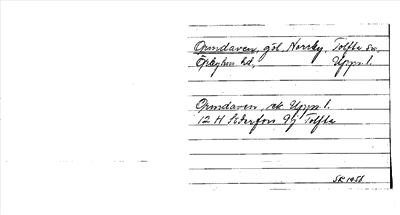 Ormdaren, gd, Norrby, Tolfta sn,
Örbyhus hd, Upps l.
Ormdaren, ek Upps l.
12 H Söderfors 9j Tolfta
SK 1956